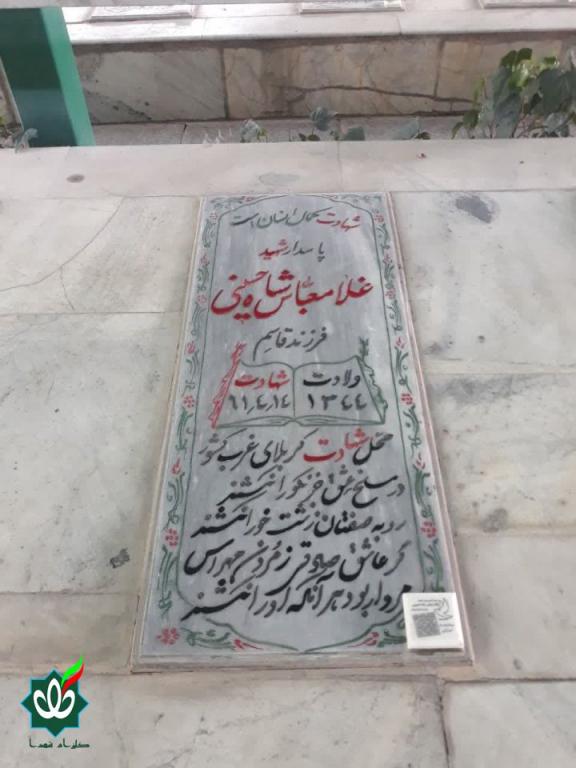 شهادت کمال انسان است
پاسدار شهید
غلامعباس شاه حسینی
فرزند قاسم
ولادت شهادت
۱۳۴۴ ۶۱٫۴٫۱۴
محل شهادت کربلای غرب کشور
در مسلخ عشق جز نکو را نکشند
روبه صفتان زشت خو را نکشند
گر عاشق صادقی ز مردن مهراس
مردار بود هر آنکه او را نکشند
گلزار شهدا